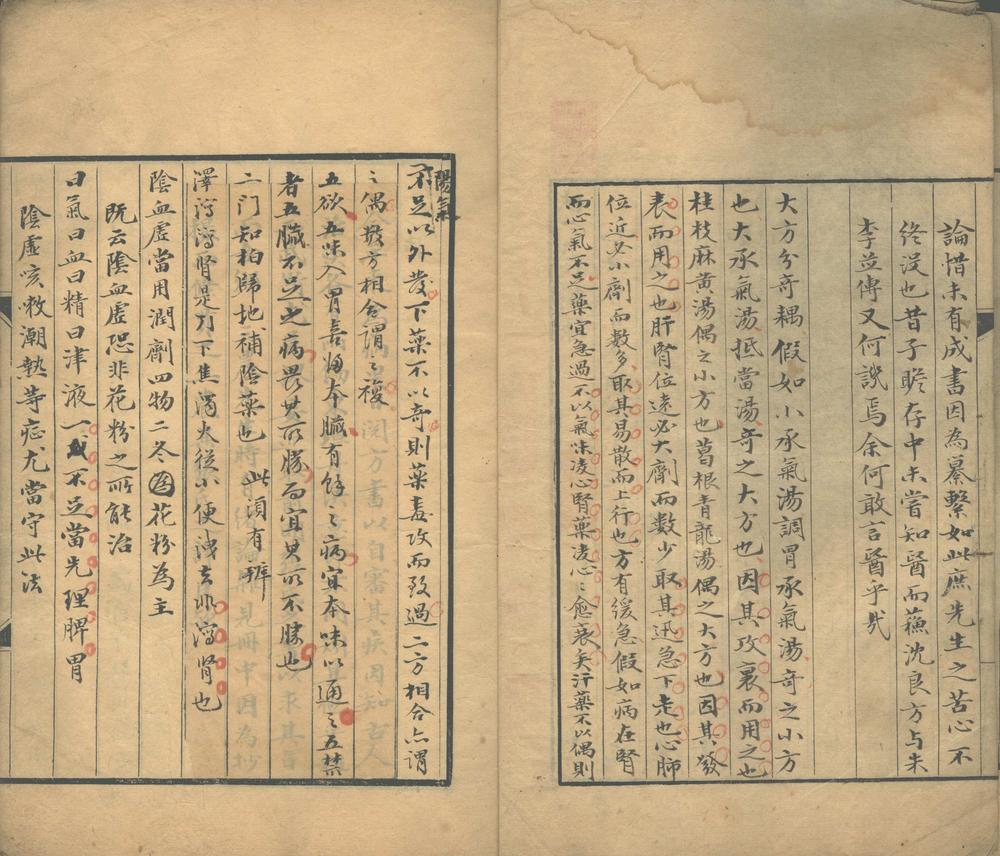 論惜未有成書因為纂繫如此庶先生之苦心不
終没也昔子瞻存中未嘗知醫而蘓沈良方与朱
李並傳又何譏焉余何敢言醫乎哉
大方分奇耦假如小承氣湯調胃承氣湯奇之小方
也大承氣湯抵當湯奇之大方也因其攻裏而用之也
桂枝麻黃湯偶之小方也葛根青龍湯偶之大方也因其發
表而用之也肝腎位遠必大劑而数少取其迅急下走也心肺
位近必小劑而数多取其易散而上行也方有缓急假如病在腎
而心氣不足藥宜急過不以氣味凌心腎藥凌心心愈衰矣汗藥不以偶則
陽氣
不足以外發下藥不以奇則藥毒攻而致過二方相合亦謂
之偶数方相合謂之複
五欲五味入胃喜歸本臟有餘之病宜本味以通之五禁
者五臟不足之病畏其所勝而宜其所不勝也
二門知柏歸地補陰藥也 此須有辨
澤瀉瀉腎是刀下焦濁火從小便洩去非瀉腎也
陰血虛當用潤劑四物二冬圓花粉為主
既云陰血虛恐非花粉之所能治
曰氣曰血曰精曰津液一或不足當先理脾胃
陰虛咳嗽潮熱等症尤當守此法